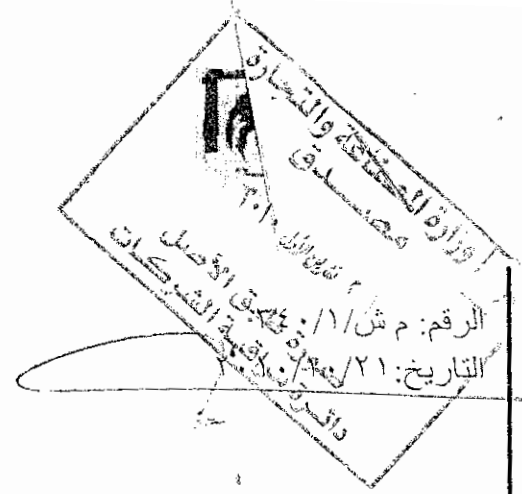 وزارة الصناعة والتجارة
مصدق
صورة طبق الأصل
دائرة مراقبة الشركات
الرقم: م ش/١/
التاريخ: ٢١/